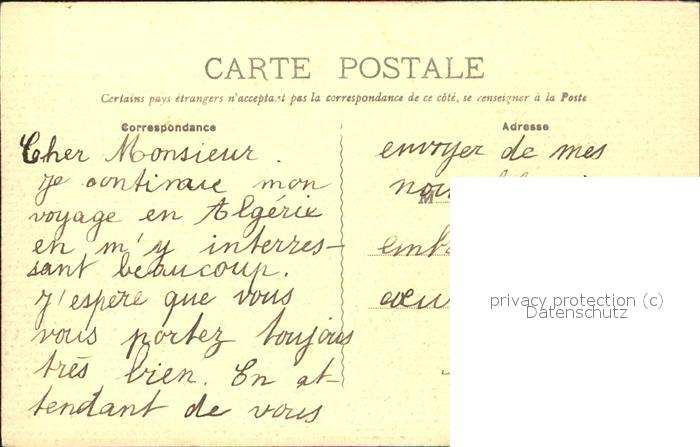 CARTE POSTALE
Certains pays étrangers n'acceptant pas la correspondance de ce côté, se renseigner à la Poste
Correspondance
Adresse
Cher Monsieur.
Je continue mon
voyage en Algérie
en m'y interres-
sant beaucoup.
J'espère que vous
vous portez toujours
très bien. En at-
tendant de vous
envoyer de mes
M
privacy protection (c)
Datenschutz